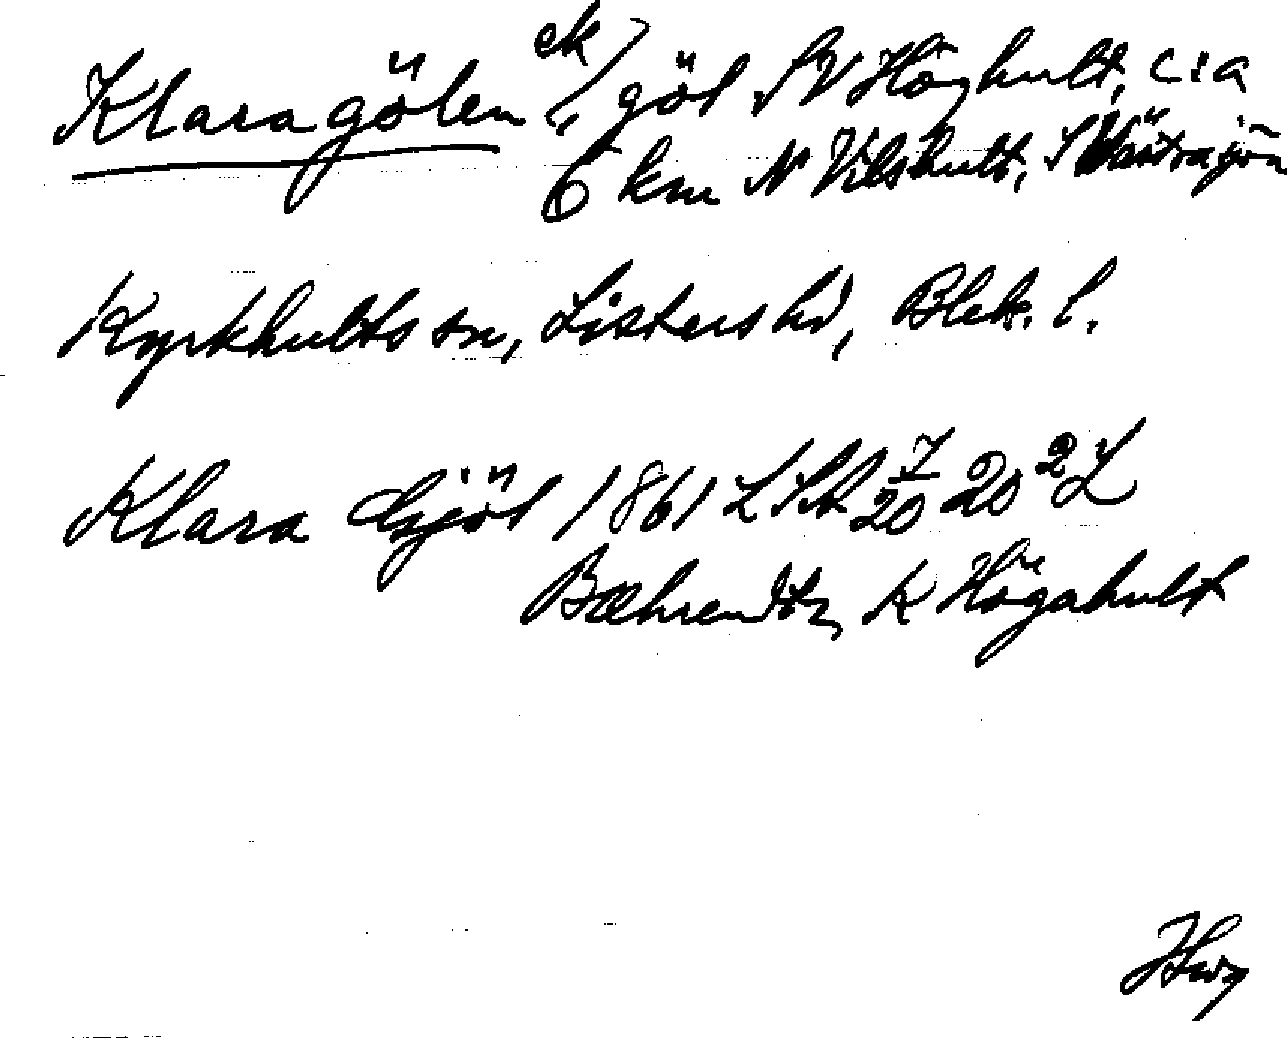 Klaragölen ek/, göl SV Höghult, c:a
6 km N Vilshult, S Västrasjön
Kyrkhults sn, Listers hd, Blek. l.
Klara Gjöl 1861 LSA 7/20 20² L
Bæhrendtz, K Högahult